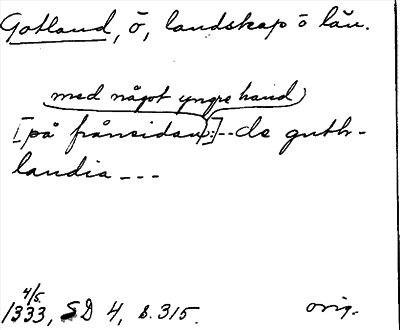 Gotland, ö, landskap o län.
med något yngre hand
[på frånsidan:]--de guth-
landia ---
4/5
1333, SD 4, s. 315. orig.